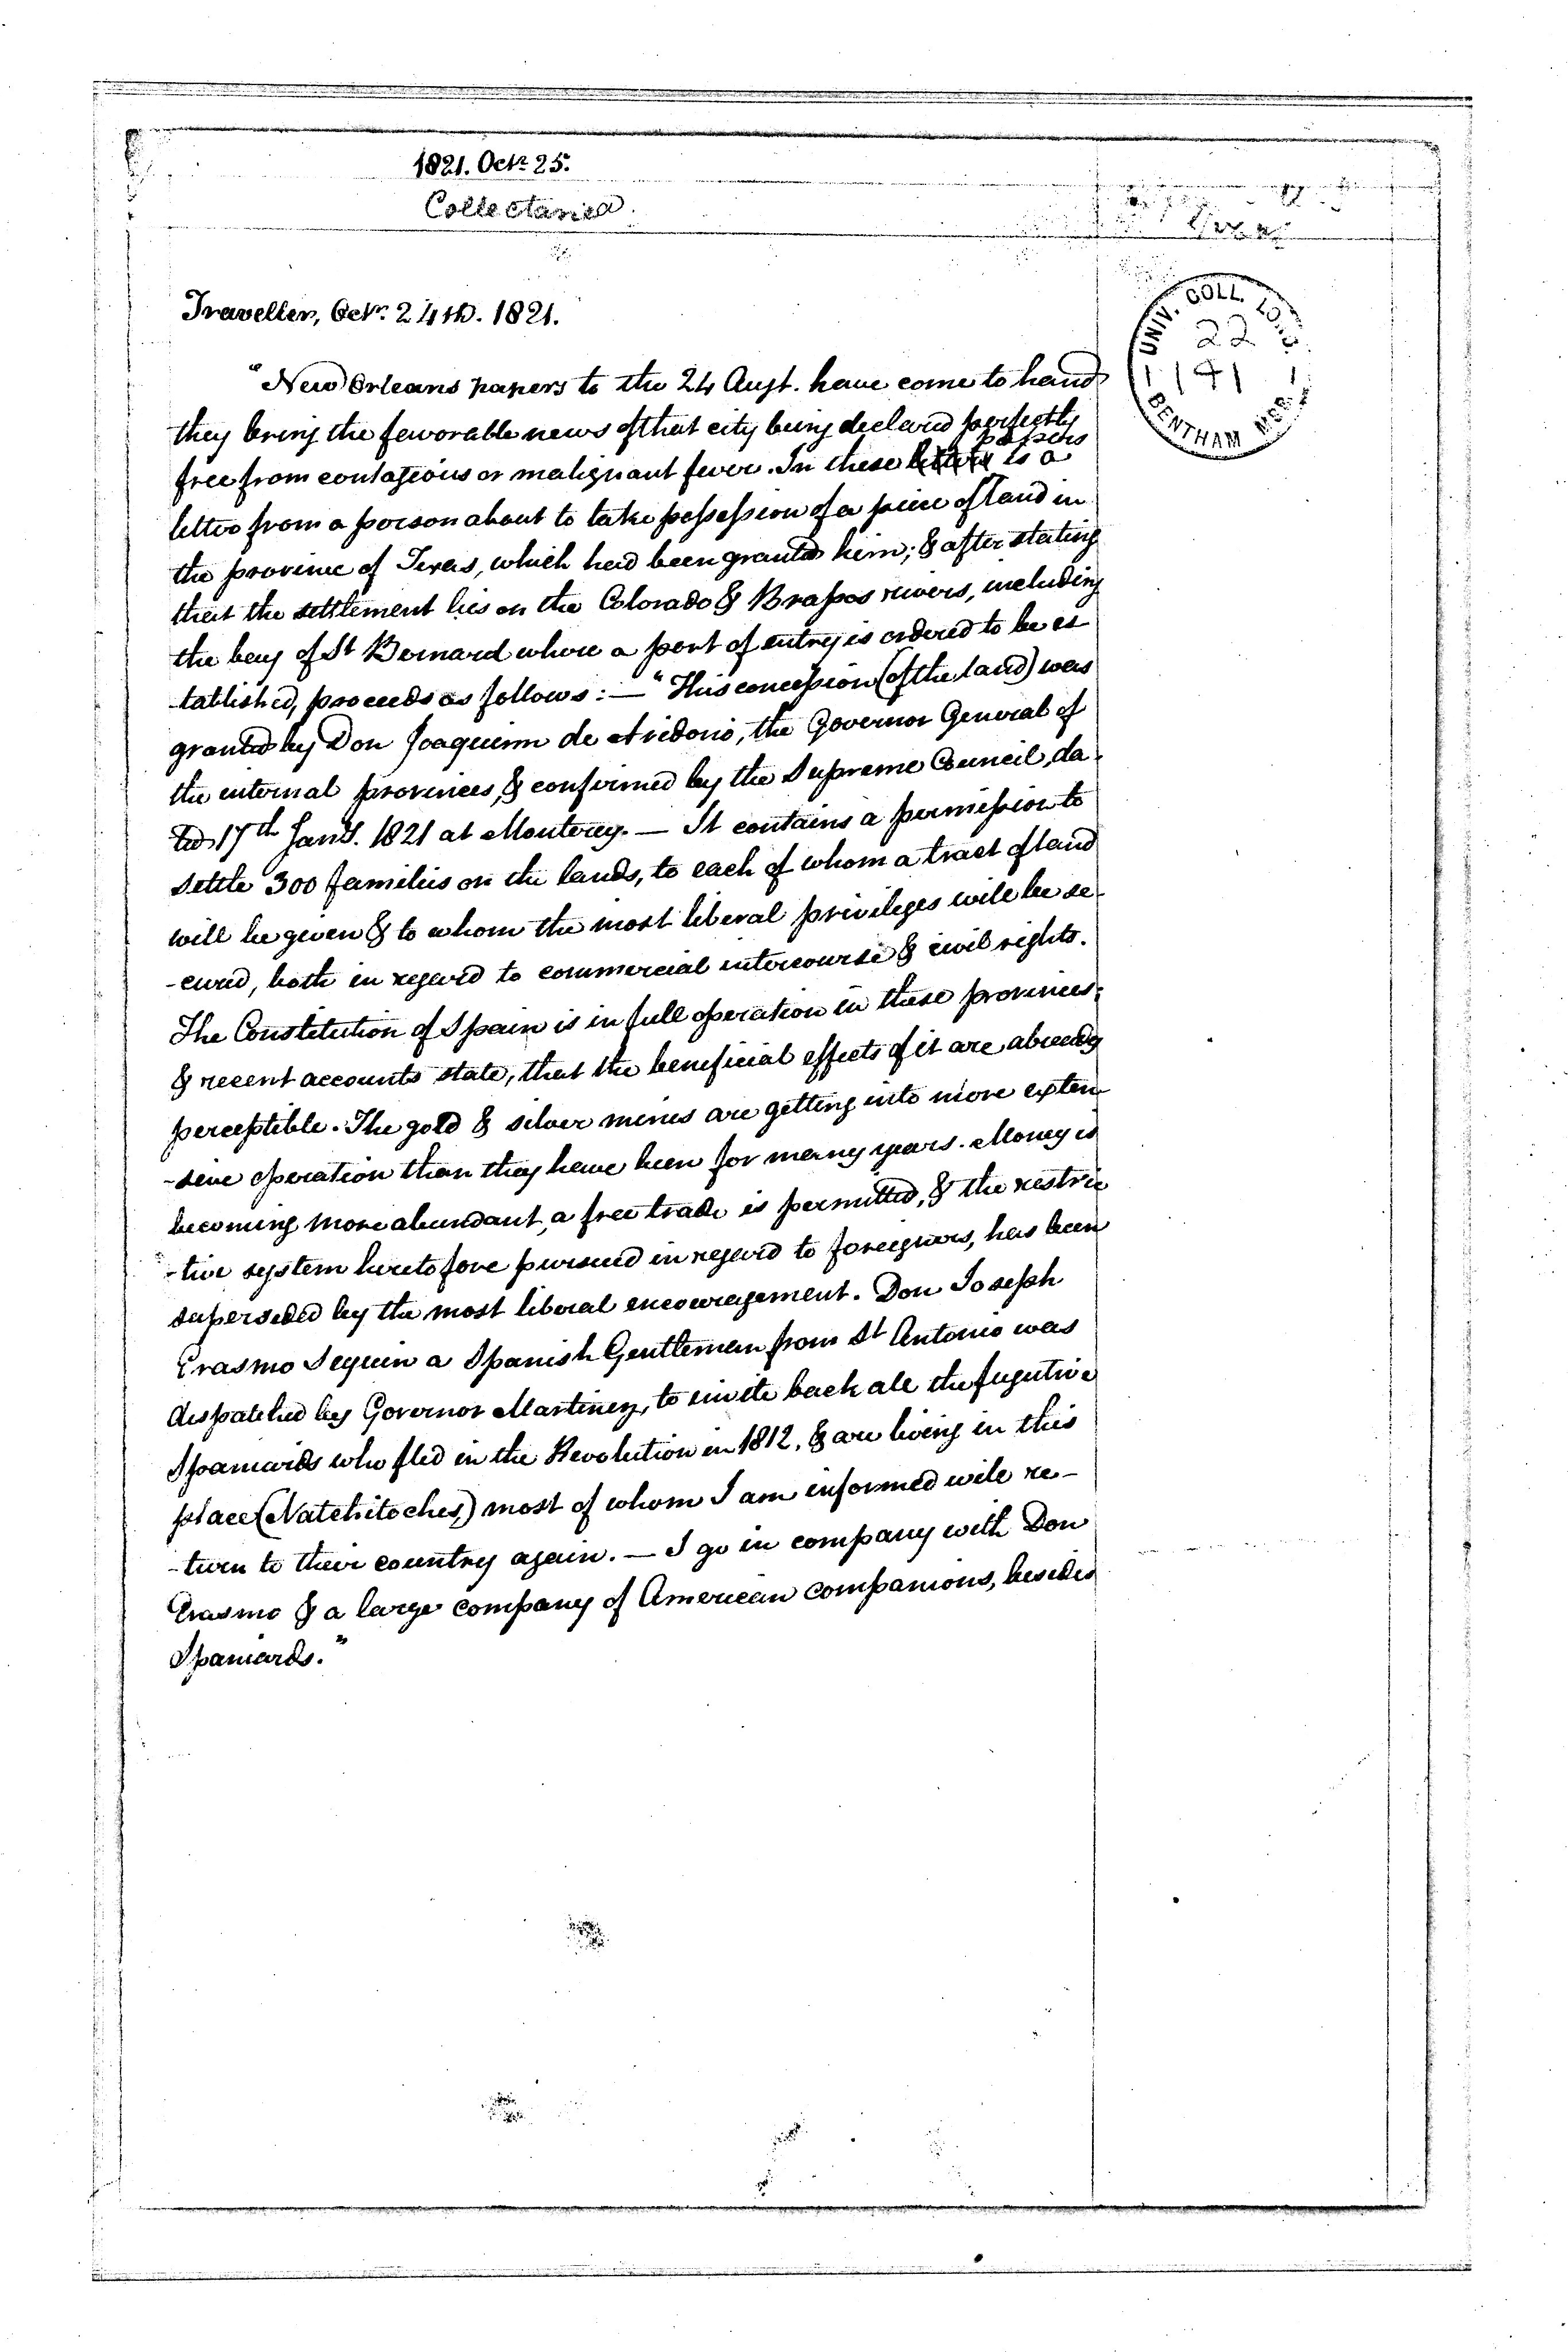 1821. Octr. 25.
Collectanea.
Traveller, Octr. 24th. 1821.
UNIV. COLL. LOND.
22
141
BENTHAM MSS
"New Orleans papers to the 24 Augt. have come to hand
they bring the favorable news of that city being declared perfectly
papers
free from contagious or malignant fever. In these letters is a
letter from a person about to take possession of a piece of land in
the province of Texas, which had been granted him; & after stating
that the settlement lies on the Colorado & Brassos rivers, including
the bay of St Bernard where a port of entry is ordered to be es
-tablished, proceeds as follows: — "This concession (of the land) was
granted by Don Joaquinn de Aredonio, the Governor General of
the internal provinces, & confirmed by the Supreme Council, da-
ted 17th Jany. 1821 at Monterey. — It contains a permission to
settle 300 families on the lands, to each of whom a tract of land
will be given & to whom the most liberal privileges will be se-
-cured, both in regard to commercial intercourse & civil rights.
The Constitution of Spain is in full operation in these provinces;
& recent accounts state, that the beneficial effects of it are already
perceptible. The gold & silver mines are getting into more exten
-sive operation than they have been for many years. Money is
becoming more abundant, a free trade is permitted, & the restric
-tive system heretofore pursued in regard to foreigners, has been
superseded by the most liberal encouragement. Don Joseph
Erasmo Seguin a Spanish Gentleman from St Antonio was
dispatched by Governor Martinez, to invite back all the fugutive
Spaniards who fled in the Revolution in 1812, & are living in this
place (Natchitoches,) most of whom I am informed will re-
-turn to their country again. — I go in company with Don
Erasmo & a large company of American companions, besides
Spaniards."